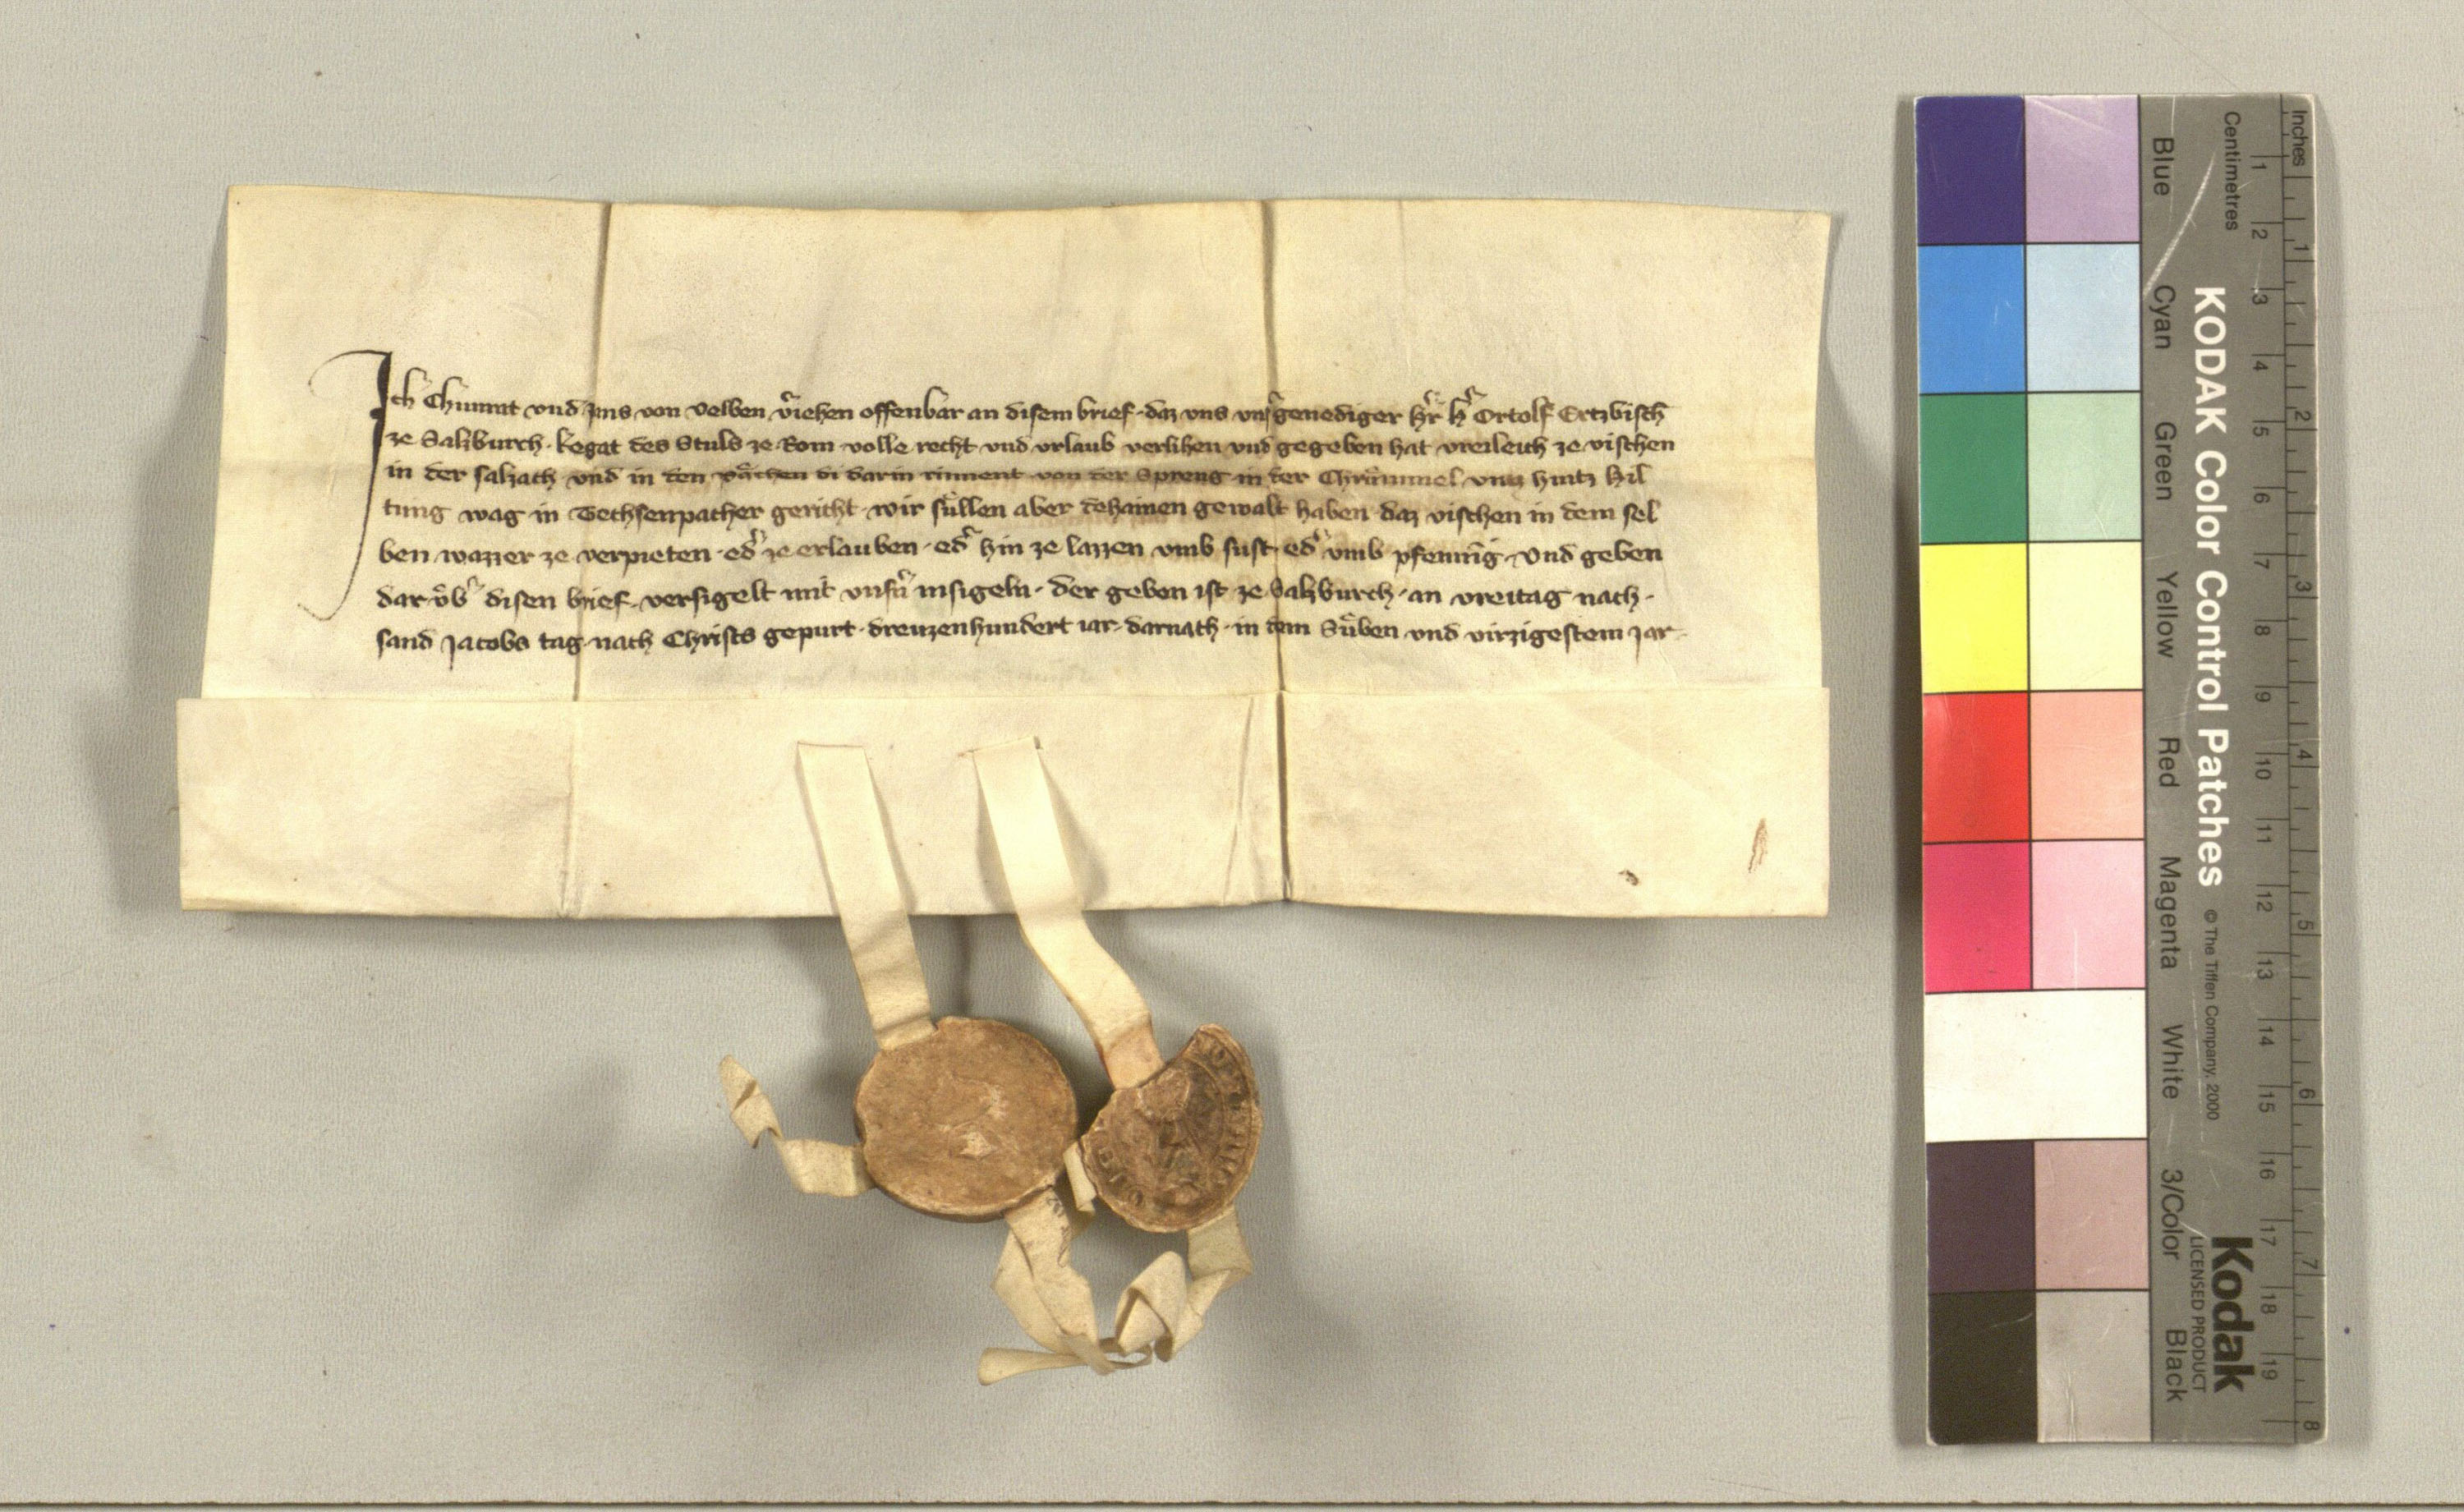 Ich Chunrat vnd Jans von Velben v̾iehen offenbar an disem brief · daz vns vns̾ genediger h̾r h̾ Ortolf Ertzbisch
ze Salzburch · Legat des Stuls ze Rom · volle recht vnd vrlaub verlihen vnd gegeben hat vreileich ze vischen
in der salzach vnd in den pͤchen di darin rinnent von der Spreng in der Chrümmel vntz hintz Hil
tung wag in Techsenpacher gericht · wir süllen aber dehainen gewalt haben daz vischen in dem sel
ben wazzer ze verpieten · ed̾ ze erlauben · ed̾ hin ze lazzen vmb sust · ed̾ vmb pfenni̅g · Vnd geben
dar vͤb̾ disen brief · versigelt mit vnsn̾ insigeln · der geben ist ze Salzburch · an vreitag nach ·
sand Jacobs tag · nach Christs gepurt · dreuzenhundert iar · darnach · in dem Süben vnd virzigestem Jar ·
KODAK Color Control Patches
© The Tiffen Company, 2000
Kodak
LICENSED PRODUCT
Inches
1 2 3 4 5 6 7 8
Centimetres
1 2 3 4 5 6 7 8 9 10 11 12 13 14 15 16 17 18 19
Blue Cyan Green Yellow Red Magenta White 3/Color Black